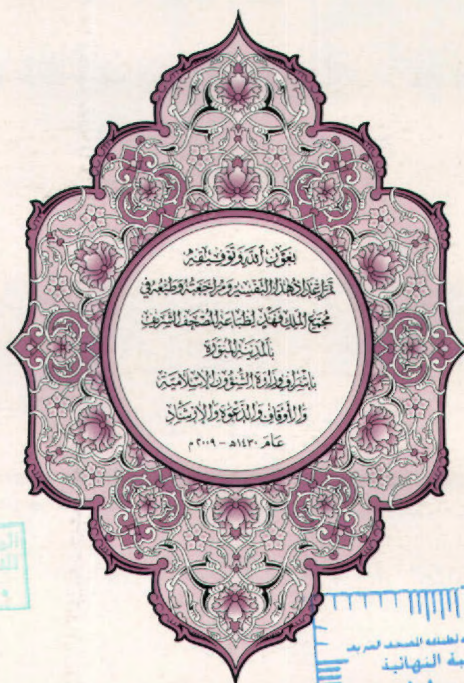 بِعَوْنِ ٱللَّهِ وَتَوْفِيقِهِ
تَمَّ إِعْدَادُ هَذَا التَّفْسِيرِ وَمُرَاجَعَتُهُ وَطَبْعُهُ فِي
مُجَمَّعِ المَلِكِ فَهْدٍ لِطِبَاعَةِ المُصْحَفِ الشَّرِيفِ
بِالمَدِينَةِ المُنَوَّرَةِ
بِإِشْرَافِ وَزَارَةِ الشُّؤُونِ الإِسْلَامِيَّةِ
وَالأَوْقَافِ وَالدَّعْوَةِ وَالإِرْشَادِ
عَامَ ١٤٣٠هـ - ٢٠٠٩م
النهائية